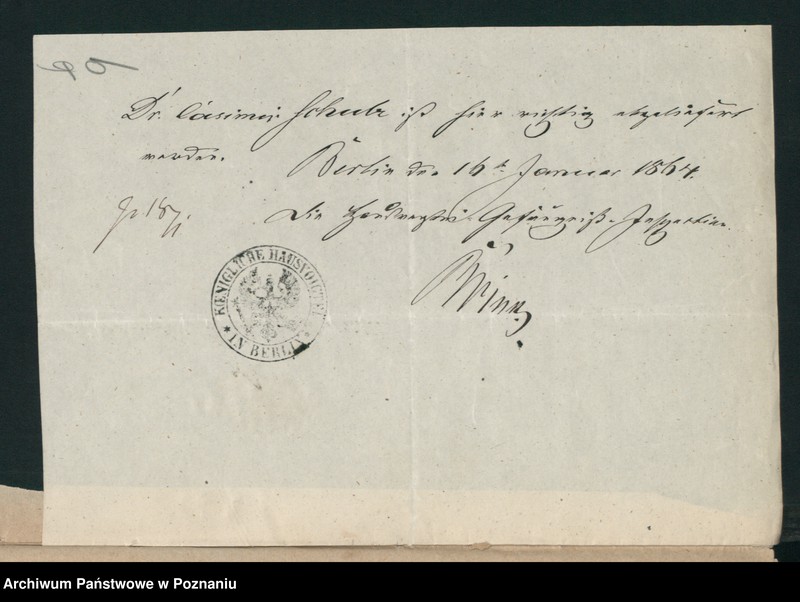 Dr. Casimir Schulz ist hier richtig abgeliefert
worden. Berlin den 16t Januar 1864.
Die Hausvogtei-Gefängniß-Inspection.
KŒNIGLICHE HAUSVOIGTEI
* IN BERLIN *
Archiwum Państwowe w Poznaniu